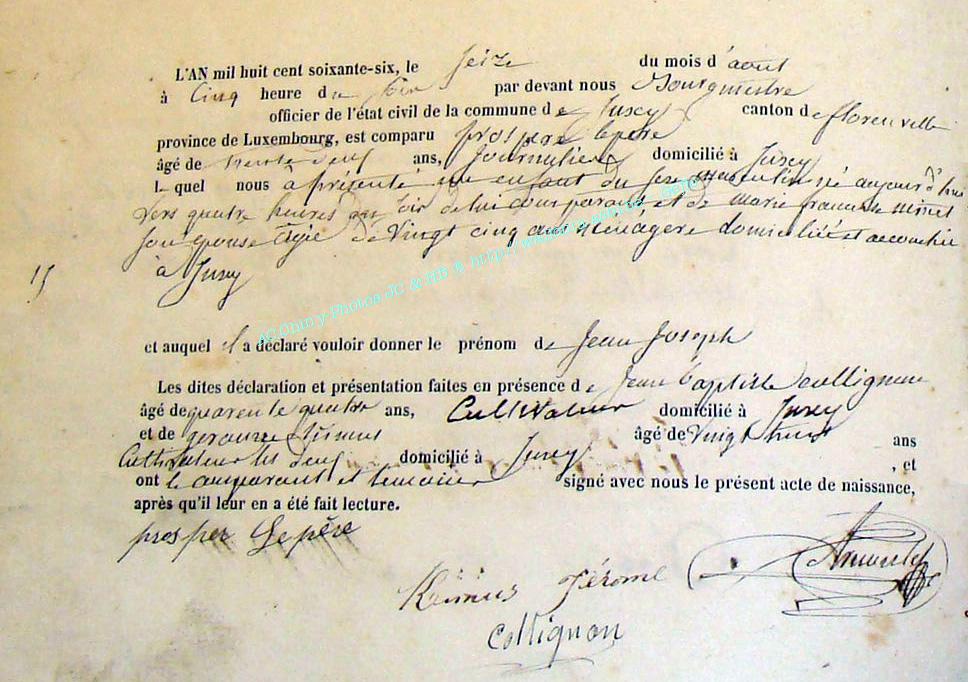 L'AN mil huit cent soixante-six, le Seize du mois d'août
à Cinq heure du soir par devant nous Bourgmestre
officier de l'état civil de la commune de Jusey canton de florenville
province de Luxembourg, est comparu prospere Lepere
âgé de trente deux ans, Journalier domicilié à Jusey
lequel nous à présenté un enfant du sexe masculin né aujourd'hui
vers quatre heures du soir de lui comparant et de marie francoise
son épouse agée de Vingt cinq ans Ménagère domiciliée et accouchée
à Jusey
15
AC Chiny Photos JC & HB ® http://
et auquel il a déclaré vouloir donner le prénom de Jean Joseph
Les dites déclaration et présentation faites en présence de Jean baptiste Collignon
âgé de quarente quatre ans, Cultivateur domicilié à Jusey
et de âgé de Vingt ans
Cultivateur les deux domicilié à Jusey , et
ont le comparant et temoins signé avec nous le présent acte de naissance,
après qu'il leur en a été fait lecture.
prosper Lepère
Reimus Jérome
Collignon